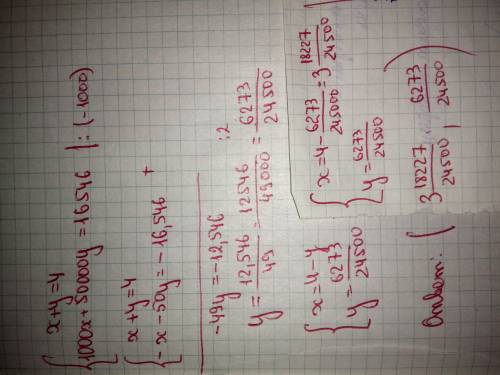 x+y=4
1000x+50000y=16546 |:(-1000)
x+y=4
-x-50y=-16,546 +
-49y=-12,546
y=12,546/49=12546/49000 :2 =6273/24500
x=4-y
y=6273/24500
x=4-6273/245000=3 18227/24500
y=6273/24500
Ответ: (3 18227/24500 | 6273/24500)